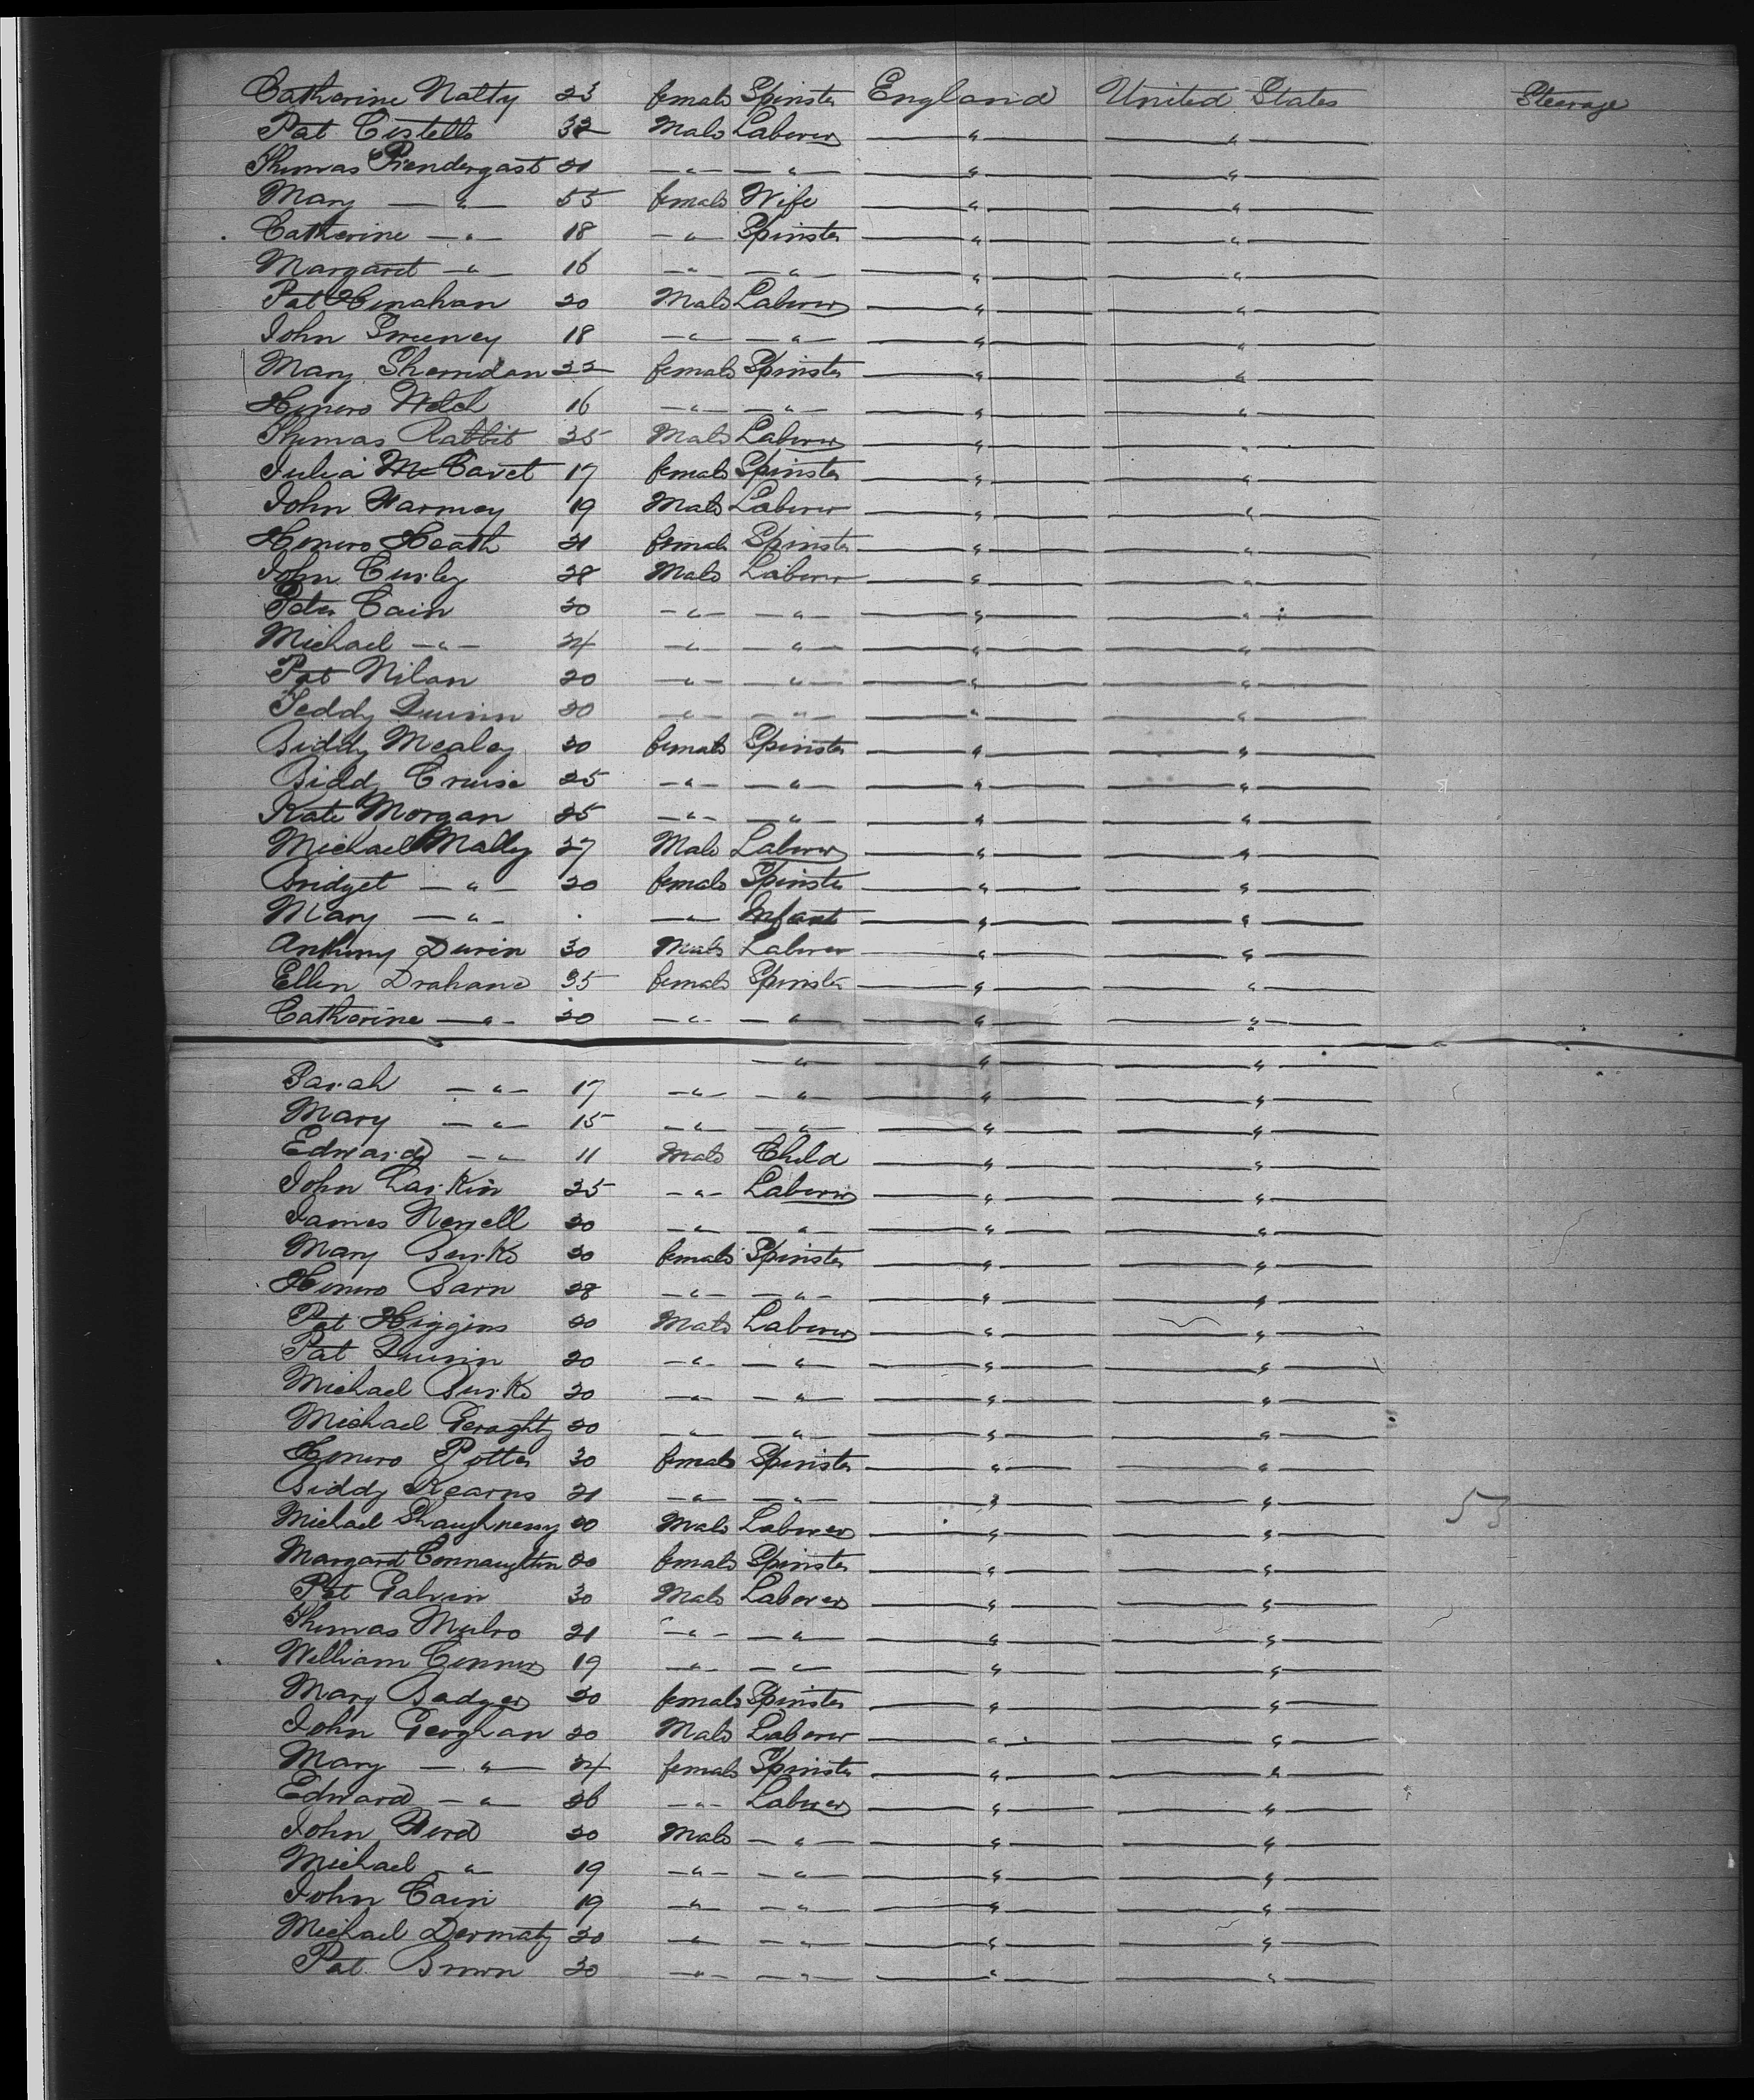 Catherine Nalty 23 female Spinster England United States Steerage
Pat Costello 32 Male Laborer — " — — " —
Thomas Prendergast 21 — " — — " — — " — — " —
Mary — " — 55 female Wife — " — — " —
Catherine — " — 18 — " — Spinster — " — — " —
Margaret — " — 16 — " — — " — — " — — " —
Pat Hinahan 20 Male Laborer — " — — " —
John Sweeney 18 — " — — " — — " — — " —
Mary Sherridan 22 female Spinster — " — — " —
Honero Welch 16 — " — — " — — " — — " —
Thomas Rabbit 35 Male Laborer — " — — " —
Julia McCavet 17 female Spinster — " — — " —
John Warmey 19 Male Laborer — " — — " —
Honero Heath 21 female Spinster — " — — " —
John Curley 28 Male Laborer — " — — " —
Peter Cain 20 — " — — " — — " — — " —
Michael — " — 24 — " — — " — — " — — " —
Pat Nilan 20 — " — — " — — " — — " —
Teddy Quinn 20 — " — — " — — " — — " —
Biddy Mealey 20 female Spinster — " — — " —
Biddy Cruise 25 — " — — " — — " — — " —
Kate Morgan 25 — " — — " — — " — — " —
Michael Mally 27 Male Laborer — " — — " —
Bridget — " — 20 female Spinster — " — — " —
Mary — " — — " — Infant — " — — " —
Anthony Durin 30 Male Laborer — " — — " —
Ellen Drahane 35 female Spinster — " — — " —
Catherine — " — 20 — " — — " — — " — — " —
— " — — " — — " —
Sarah — " — 17 — " — — " — — " — — " —
Mary — " — 15 — " — — " — — " — — " —
Edward — " — 11 Male Child — " — — " —
John Larkin 25 — " — Laborer — " — — " —
James Newell 20 — " — — " — — " — — " —
Mary Burke 20 female Spinster — " — — " —
Honero Barn 28 — " — — " — — " — — " —
Pat Higgins 20 Male Laborer — " — — " —
Pat Quinn 20 — " — — " — — " — — " —
Michael Burke 20 — " — — " — — " — — " —
Michael Geraghty 20 — " — — " — — " — — " —
Honero Potter 30 female Spinster — " — — " —
Biddy Kearns 21 — " — — " — — " — — " — 53
Michael Shaughnessy 20 Male Laborer — " — — " —
Margaret Connaughton 20 female Spinster — " — — " —
Pat Galvin 30 Male Laborer — " — — " —
Thomas Mulro 21 — " — — " — — " — — " —
William Connor 19 — " — — " — — " — — " —
Mary Badger 20 female Spinster — " — — " —
John Geoghan 20 Male Laborer — " — — " —
Mary — " — 24 female Spinster — " — — " —
Edward — " — 26 — " — Laborer — " — — " —
John Werd 20 Male — " — — " — — " —
Michael — " — 19 — " — — " — — " — — " —
John Cain 19 — " — — " — — " — — " —
Michael Dermaty 20 — " — — " — — " — — " —
Pat Brown 30 — " — — " — — " — — " —